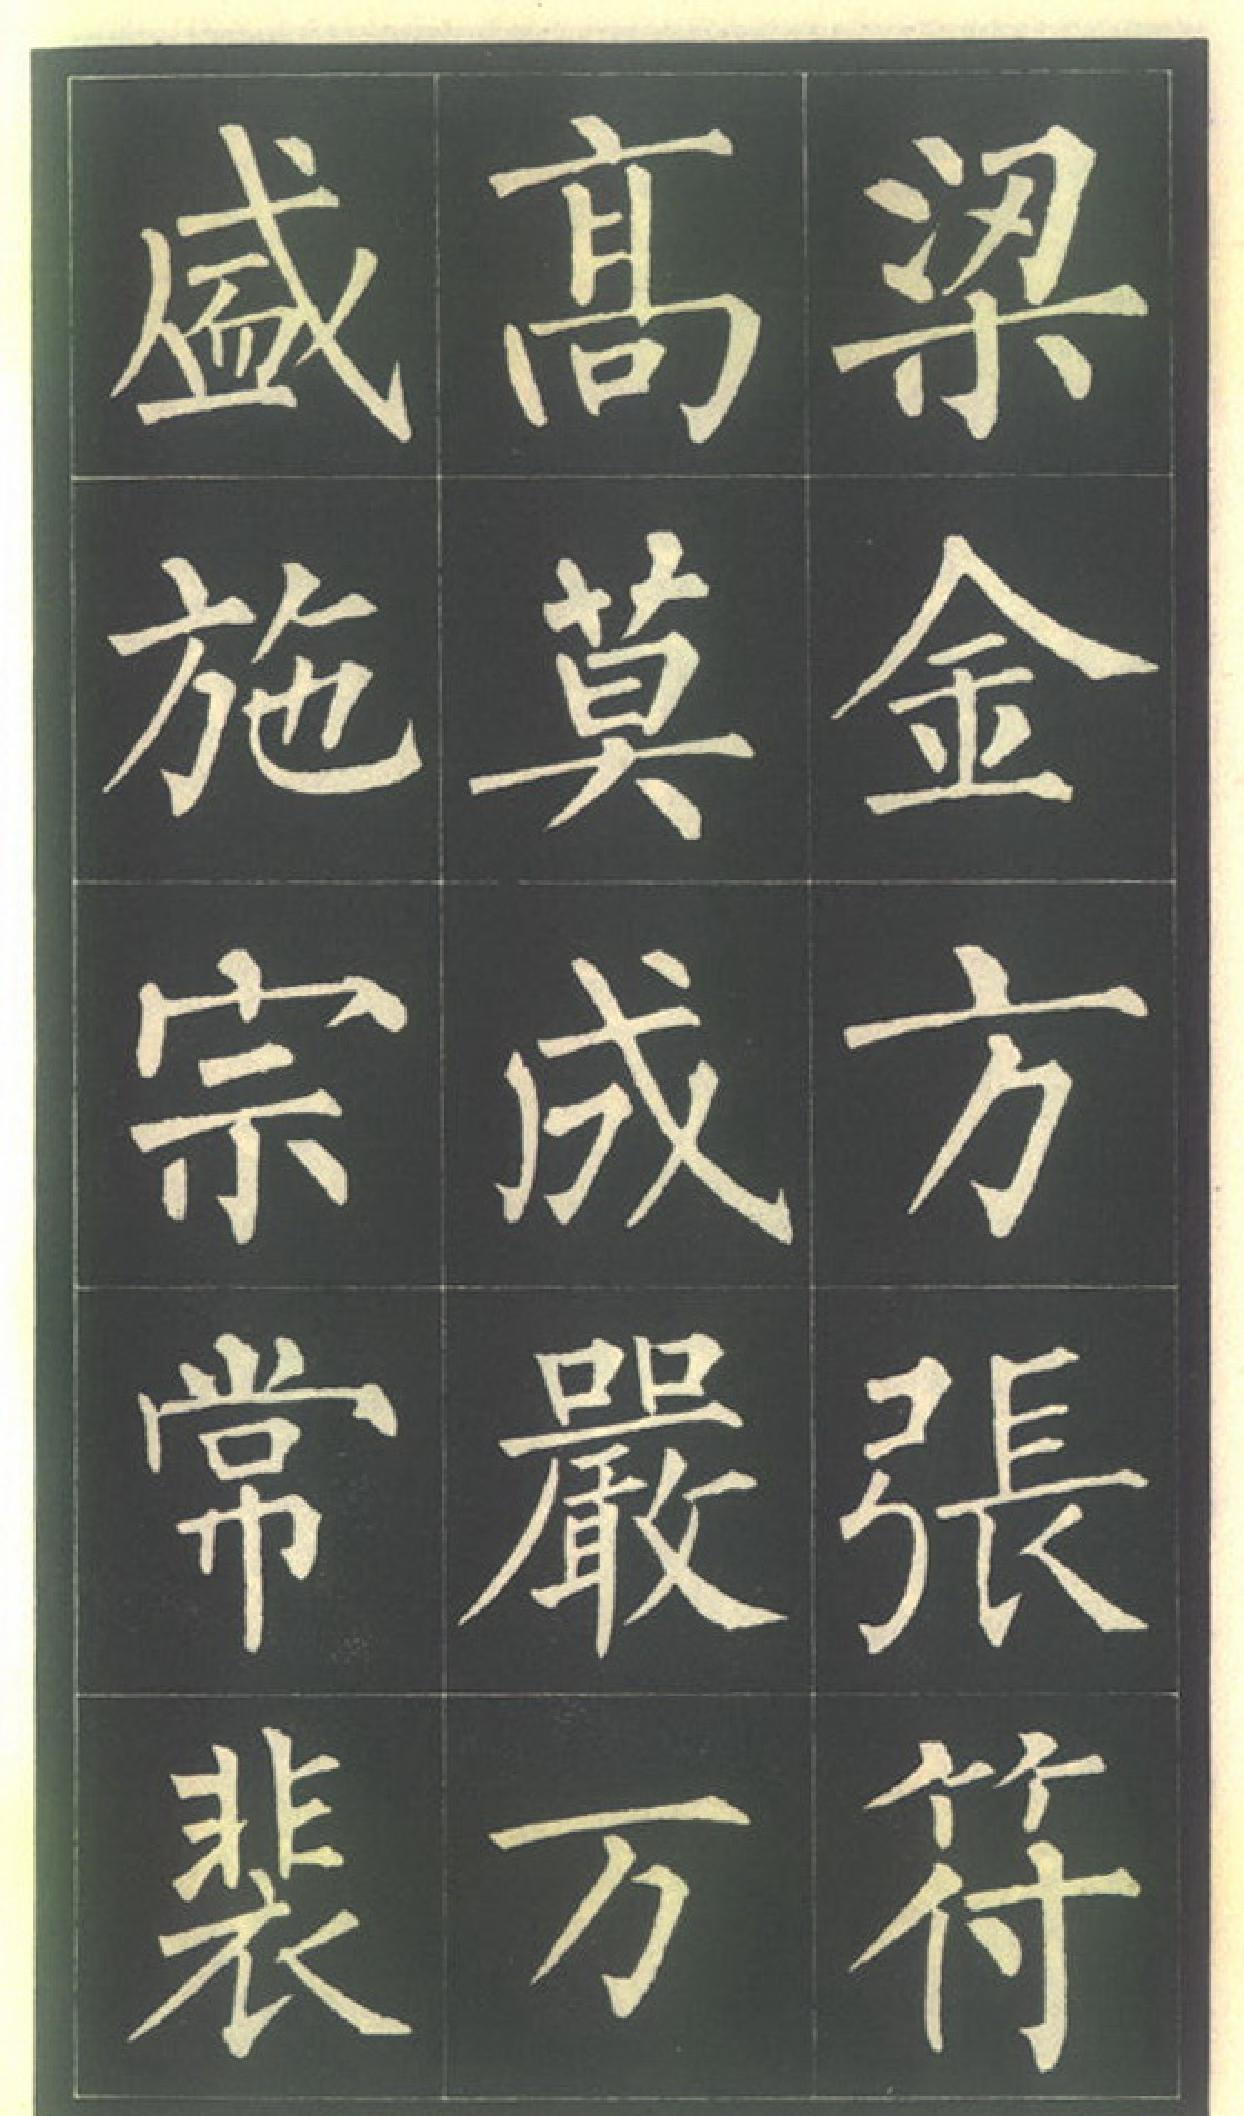 梁金方張符
高莫成嚴万
盛施宗常裴